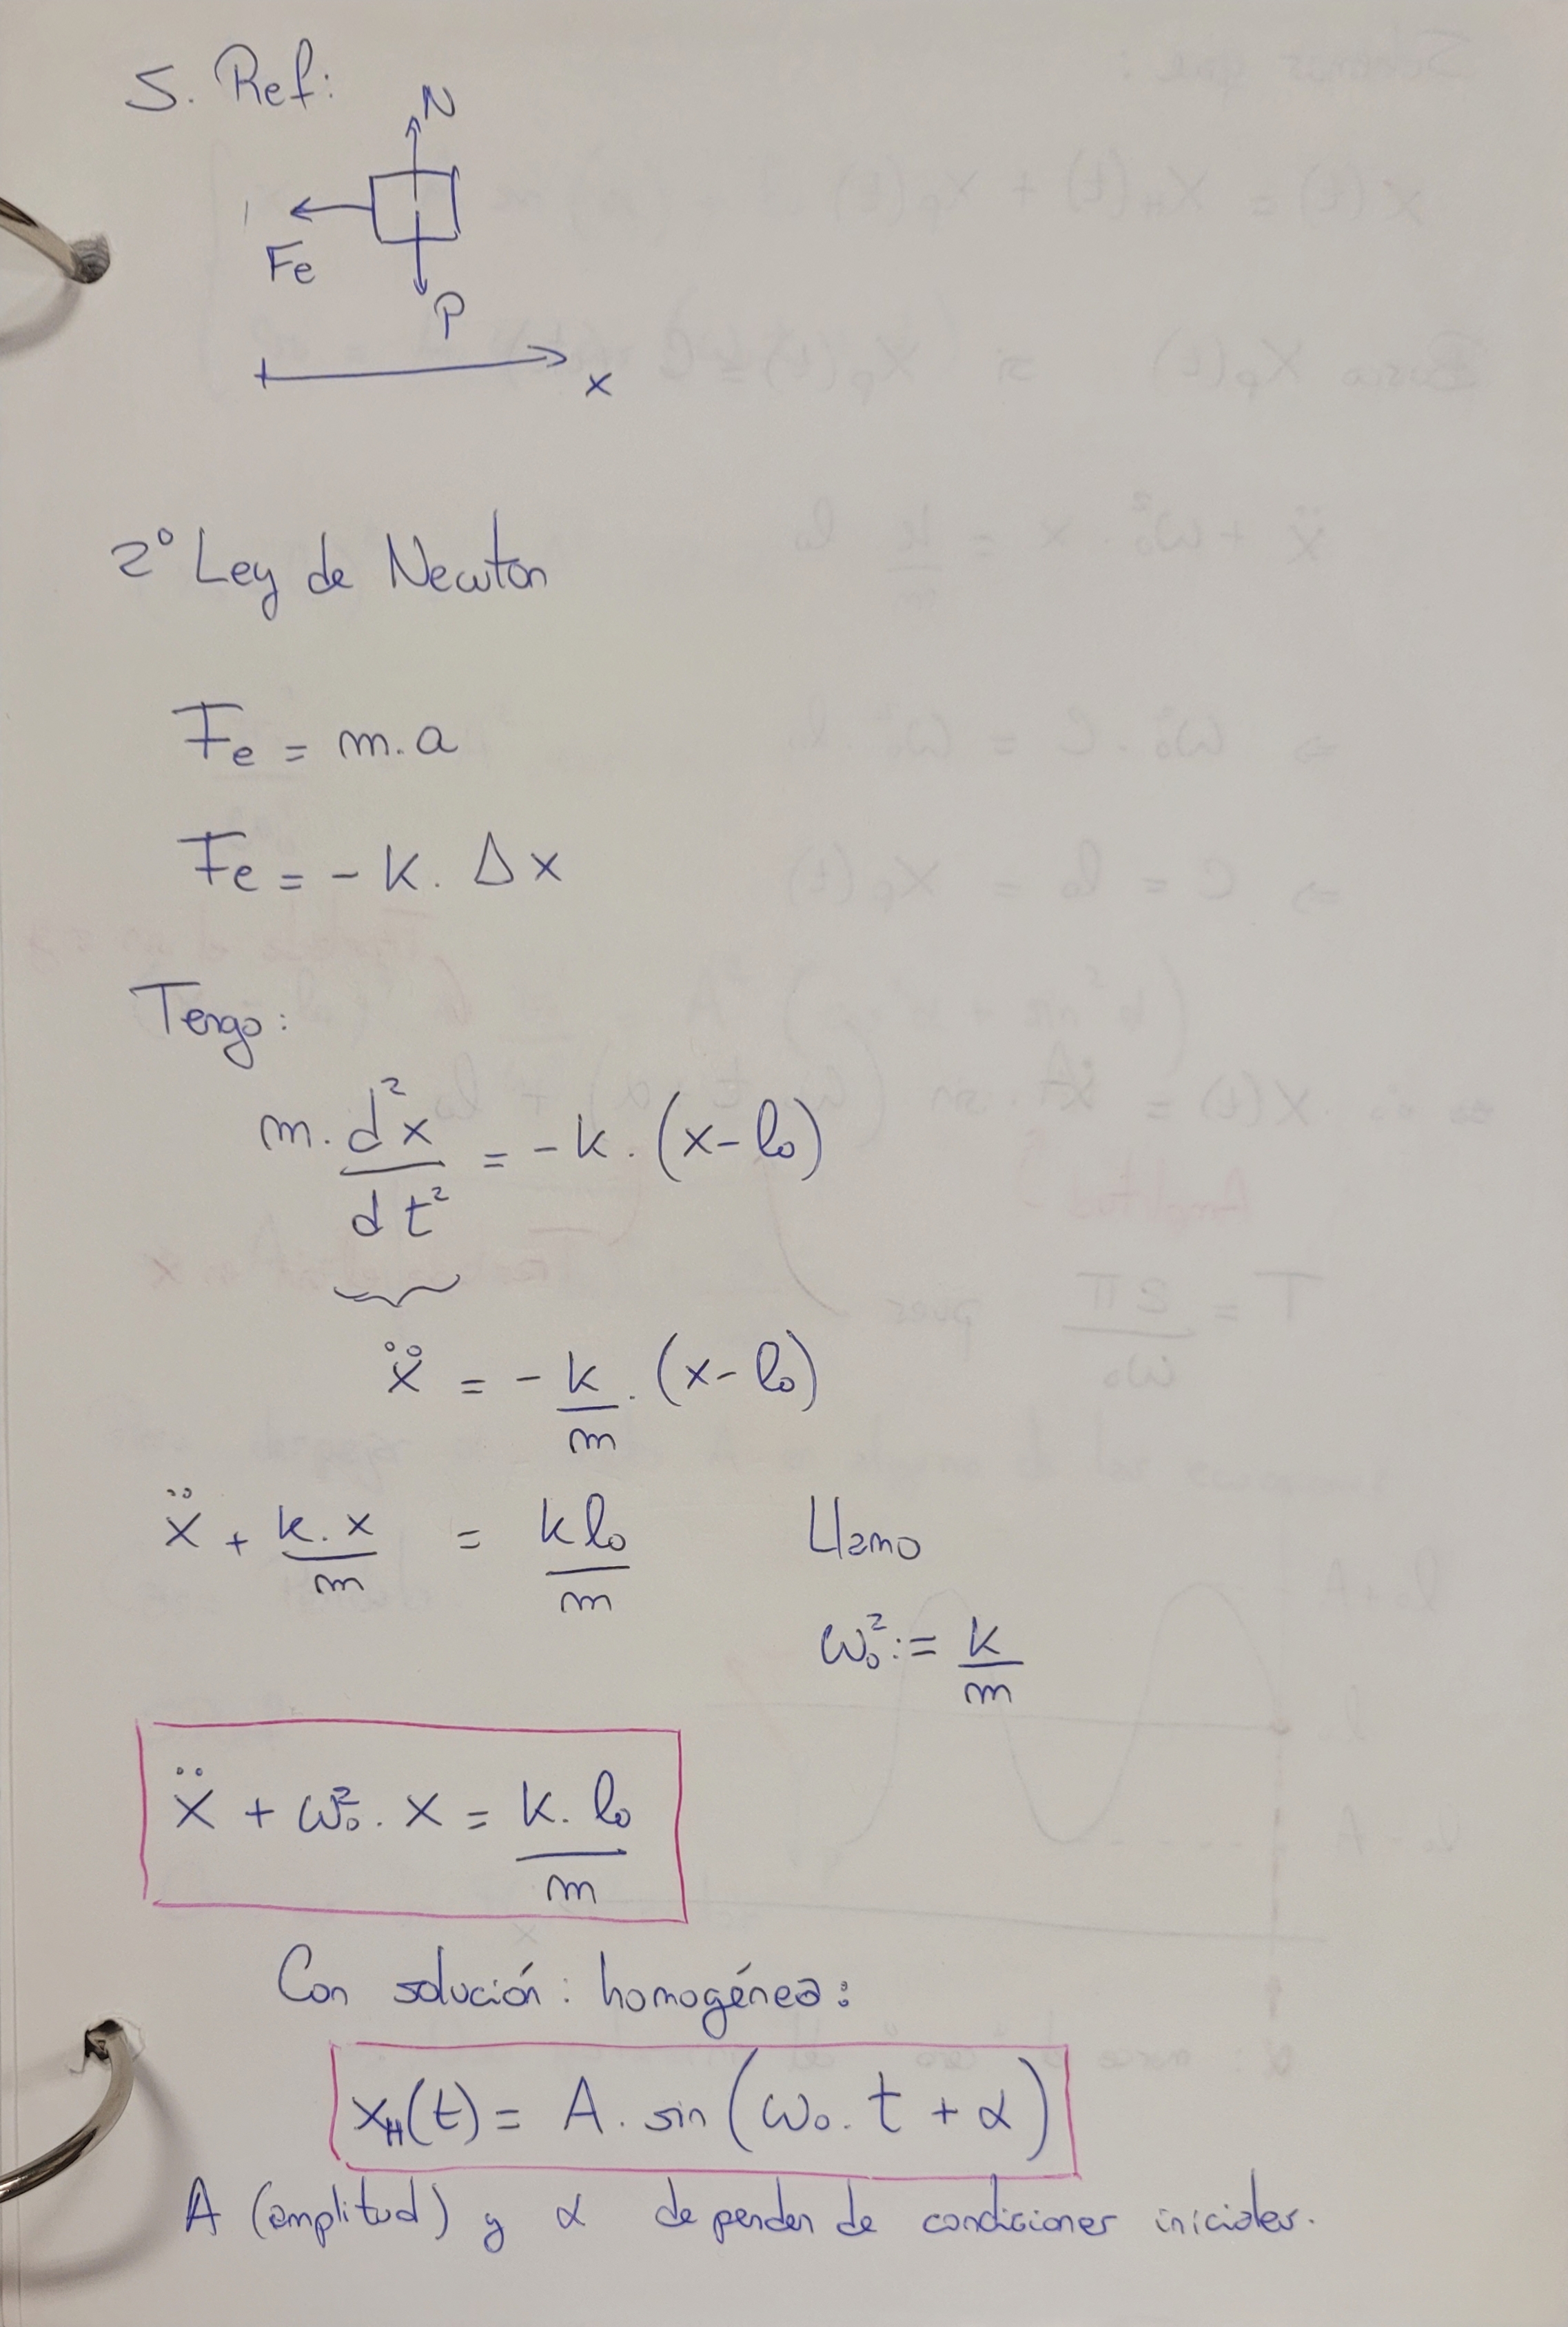 S. Ref:
N
Fe
P
x
2° Ley de Newton
Fe = m.a
Fe = - K. Δx
Tengo:
m. d²x/dt² = - k. (x - l₀)
ẍ = - k/m . (x - l₀)
ẍ + k.x/m = k l₀/m Llamo
ω₀² := k/m
ẍ + ω₀² . x = k. l₀/m
Con solución: homogénea:
x_H(t) = A. sin(ω₀. t + α)
A (amplitud) y α dependen de condiciones iniciales.